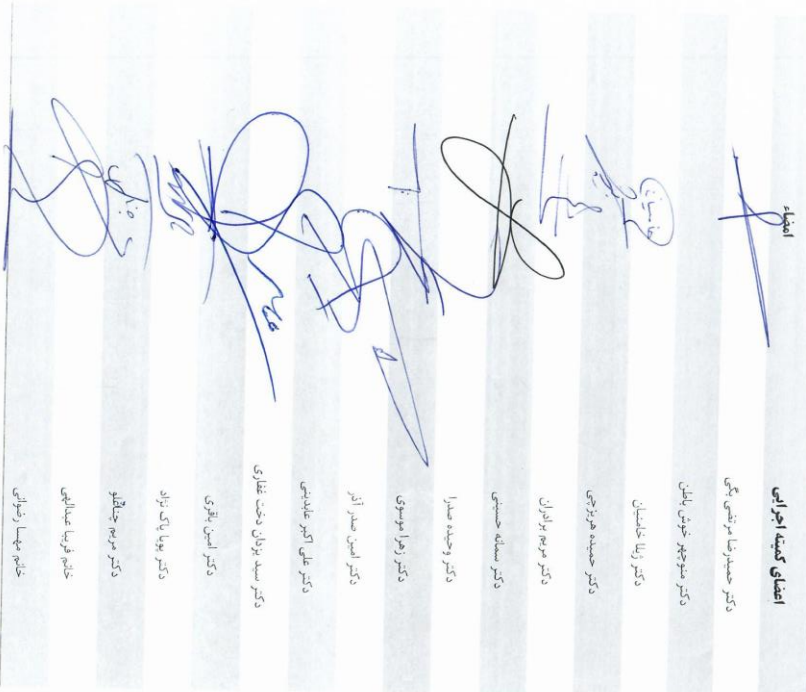 اعضای کمیته اجرایی امضاء
دکتر حمیدرضا مرتضی بگی
دکتر منوچهر خوش باطن
دکتر ژیلا خامنیان
دکتر حمیده هریزچی
دکتر مریم برادران
دکتر سمانه حسینی
دکتر وحیده صدرا
دکتر زهرا موسوی
دکتر امین صدر آذر
دکتر علی اکبر عابدینی
دکتر سید یزدان دخت غفاری
دکتر امین باقری
دکتر پویا پاک نژاد
دکتر مریم چناقلو
خانم فریبا عبدالهی
خانم مهسا رضوانی